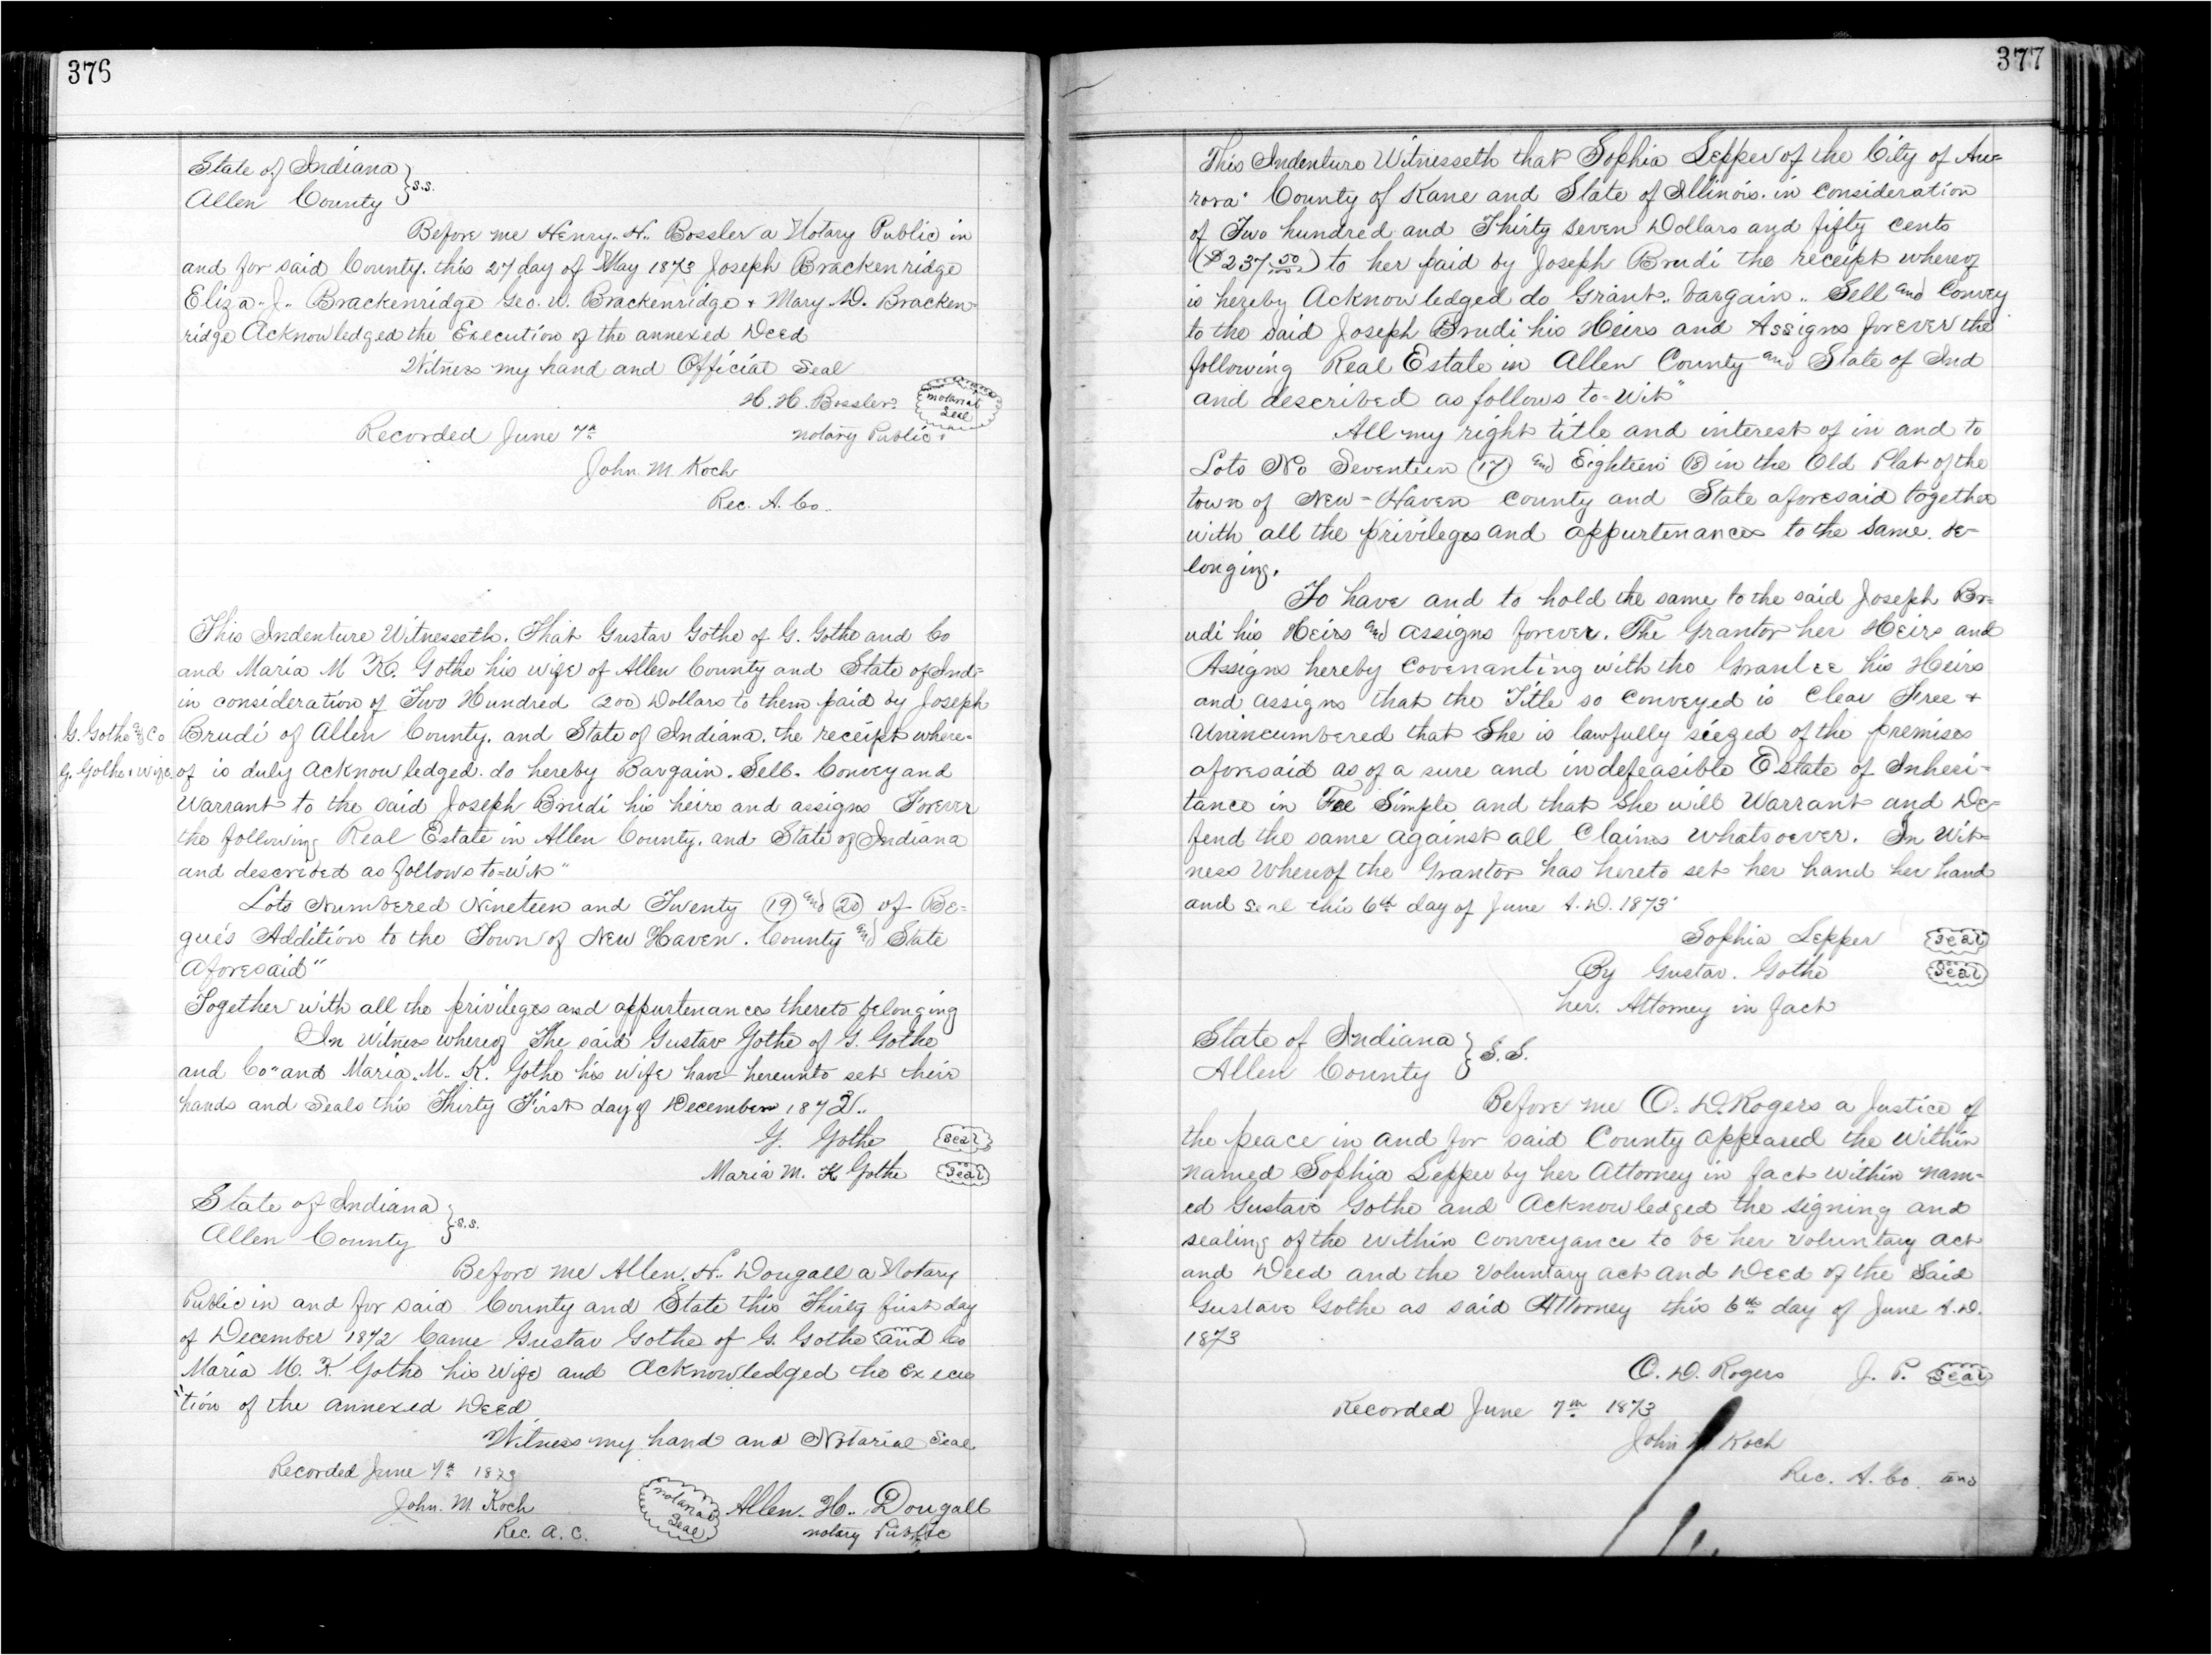 376
State of Indiana
Allen County } s.s.
Before me Henry. H.. Bossler a Notary Public in
and for said County. this 27 day of May 1873 Joseph Brackenridge
Eliza. J.. Brackenridge Geo. W. Brackenridge & Mary. D. Bracken=
ridge Acknowledged the Execution of the annexed Deed
Witness my hand and Official Seal
H. H. Bossler. notarial Seal
Recorded June 7th notary Public.
John. M. Koch
Rec. A. Co..
This Indenture Witnesseth. That Gustav Gothe of G. Gothe and Co
and Maria M K. Gothe his wife of Allen County and State of Ind=
in consideration of Two Hundred (200) Dollars to them paid by Joseph
G. Gothe and Co Brudi of Allen County. and State of Indiana. the receipt where=
G. Gothe & wife. of is duly Acknowledged. do hereby Bargain. Sell. Convey and
Warrant to the said Joseph Brudi his heirs and assigns Forever
the following Real Estate in Allen County. and State of Indiana
and described as follows to=wit"
Lots Numbered Nineteen and Twenty (19) and (20) of Be=
gue's Addition to the Town of New Haven. County and State
Aforesaid"
Together with all the privileges and appurtenances thereto belonging
In Witness whereof The said Gustav Gothe of G. Gothe
and Co" and Maria. M.. K. Gothe his wife have hereunto set their
hands and Seals this Thirty First day of December 1872..
G. Gothe Seal
Maria M. K Gothe Seal
State of Indiana
Allen County } s.s.
Before me Allen. H.. Dougall a Notary
Public in and for said County and State this Thirty first day
of December 1872 Came Gustav Gothe of G. Gothe and Co
Maria M. K. Gothe his Wife and Acknowledged the Execu
"tion of the annexed Deed
Witness my hand and Notarial Seal
Recorded June 7th 1873
John. M. Koch notarial Seal Allen. H.. Dougall
Rec. A. C. notary Public
377
This Indenture Witnesseth that Sophia Lepper of the City of Au=
rora" County of Kane and State of Illinois. in consideration
of Two hundred and Thirty Seven Dollars and fifty cents
($237 50/100) to her paid by Joseph Brudi the receipt whereof
is hereby Acknowledged do Grant.. bargain.. Sell and Convey
to the said Joseph Brudi his Heirs and Assigns forever the
following Real Estate in Allen County and State of Ind
and described as follows to=Wit"
All my right title and interest of in and to
Lots No Seventeen (17) and Eighteen (18) in the Old Plat of the
town of New=Haven County and State aforesaid together
with all the privileges and appurtenances to the same. be=
longing.
To have and to hold the same to the said Joseph Br=
udi his Heirs and assigns forever. The Grantor her Heirs and
Assigns hereby Covenanting with the Grantee his Heirs
and assigns that the Title so Conveyed is Clear Free &
Unincumbered that She is lawfully siezed of the premises
aforesaid as of a sure and indefeasible Estate of Inheri=
tance in Fee Simple and that She will Warrant and De=
fend the same against all Claims Whatsoever. In Wit=
ness Whereof the Grantor has hereto set her hand her hand
and seal this 6th day of June A.D. 1873
Sophia Lepper Seal
By Gustav. Gothe Seal
her. Attorney in fact
State of Indiana
Allen County } S.S.
Before me O. D. Rogers a Justice of
the peace in and for said County appeared the Within
named Sophia Lepper by her Attorney in fact Within nam=
ed Gustave Gothe and Acknowledged the signing and
sealing of the Within Conveyance to be her Voluntary act
and Deed and the Voluntary act and Deed of the Said
Gustave Gothe as said Attorney this 6th day of June A.D.
1873
O. D. Rogers J. P. Seal
Recorded June 7th 1873
John M Koch
Rec. A. Co. Ind